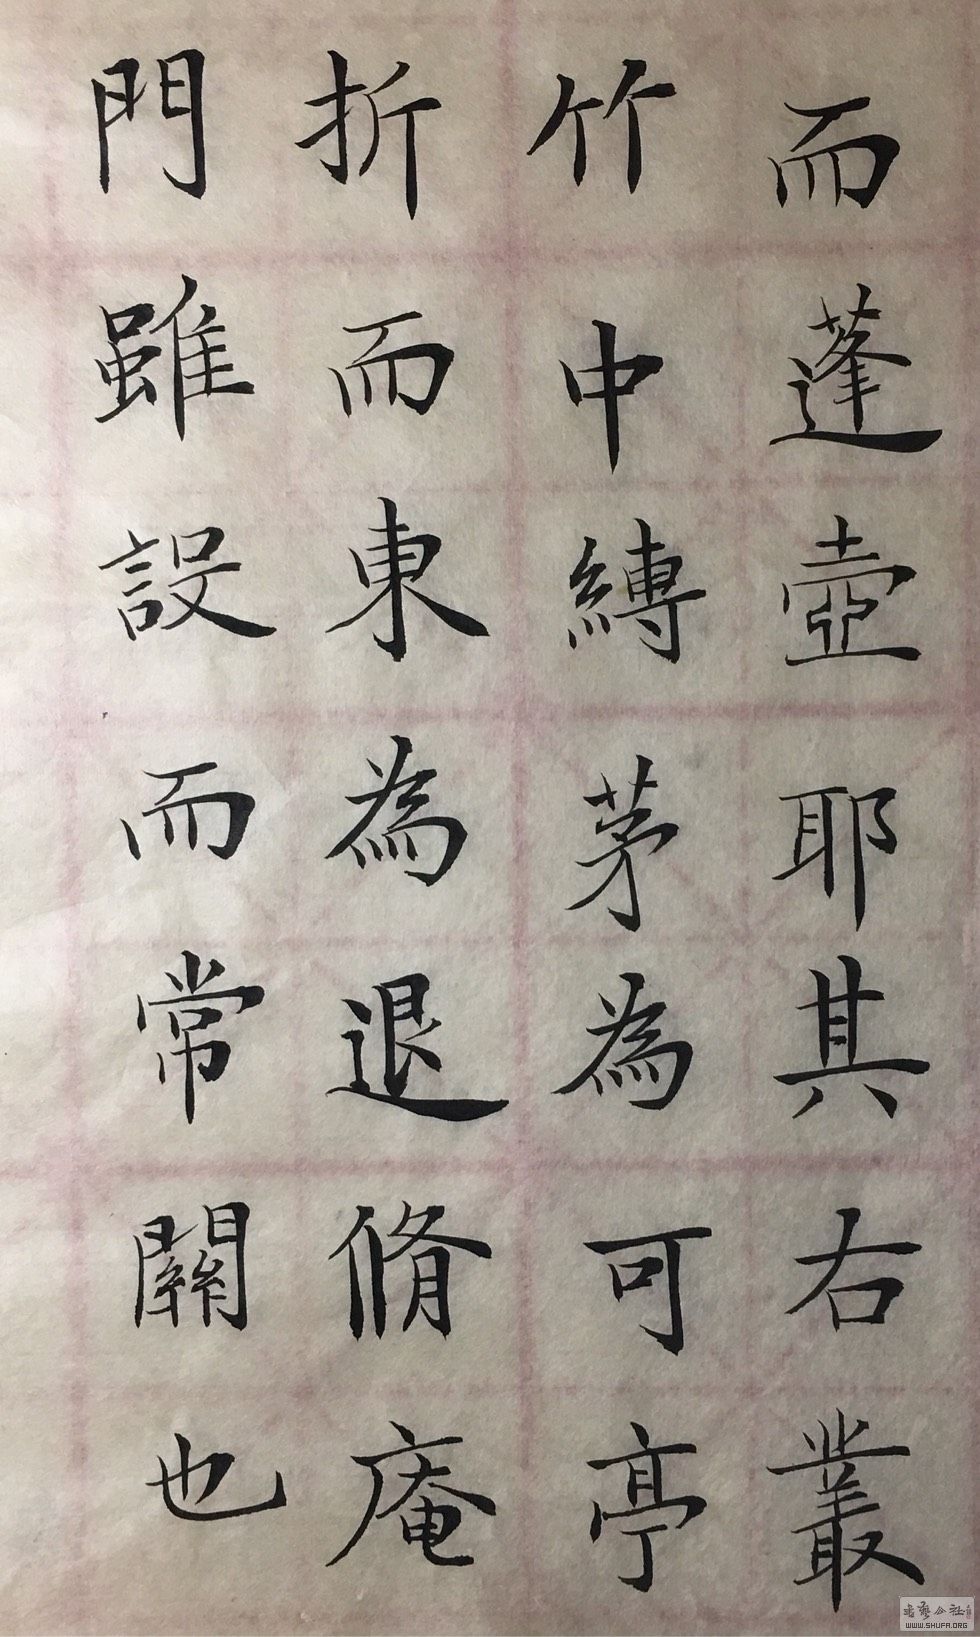 而蓬壺耶其右叢
竹中縛茅為可亭
折而東為退脩庵
門雖設而常關也
書藝公社
WWW.SHUFA.ORG